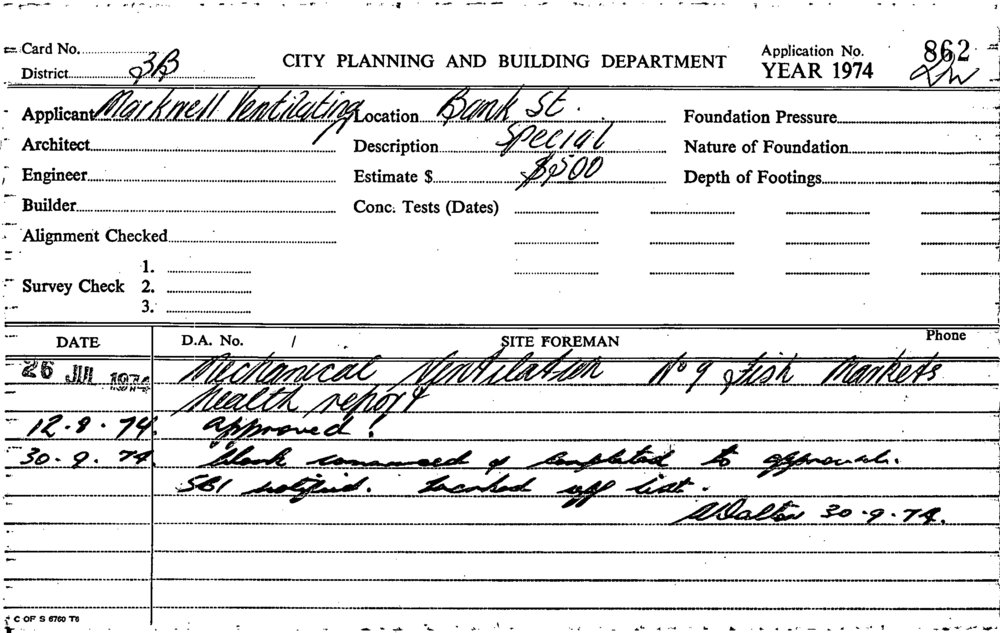 Card No.
District 3B
CITY PLANNING AND BUILDING DEPARTMENT
Application No. 862
YEAR 1974
Applicant Markwell Ventilating
Location Bank St.
Foundation Pressure
Architect
Description Special
Nature of Foundation
Engineer
Estimate $ $500
Depth of Footings
Builder
Conc. Tests (Dates)
Alignment Checked
1.
Survey Check 2.
3.
DATE D.A. No. / SITE FOREMAN Phone
26 JUL 1974 Mechanical Ventilation No 9 Fish Markets
Health report
12.8.74. approved!
30.9.74 Work commenced & completed to approval.
SBI notified. off list.
30.9.74.
C OF S 6760 T8